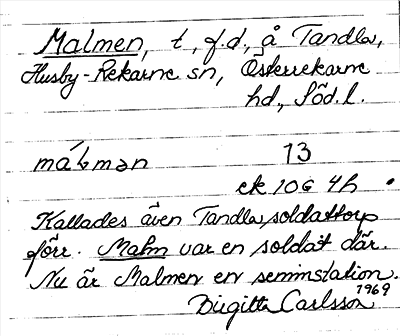 Malmen, t, f.d, å Tandla,
Husby-Rekarne sn, Österrekarne
hd, Söd.l.
målmən 13
ek 10G 4h
Kallades även Tandla soldattorp
förr. Malm var en soldat där.
Nu är Malmen en seminstation.
Birgitta Carlsson 1969